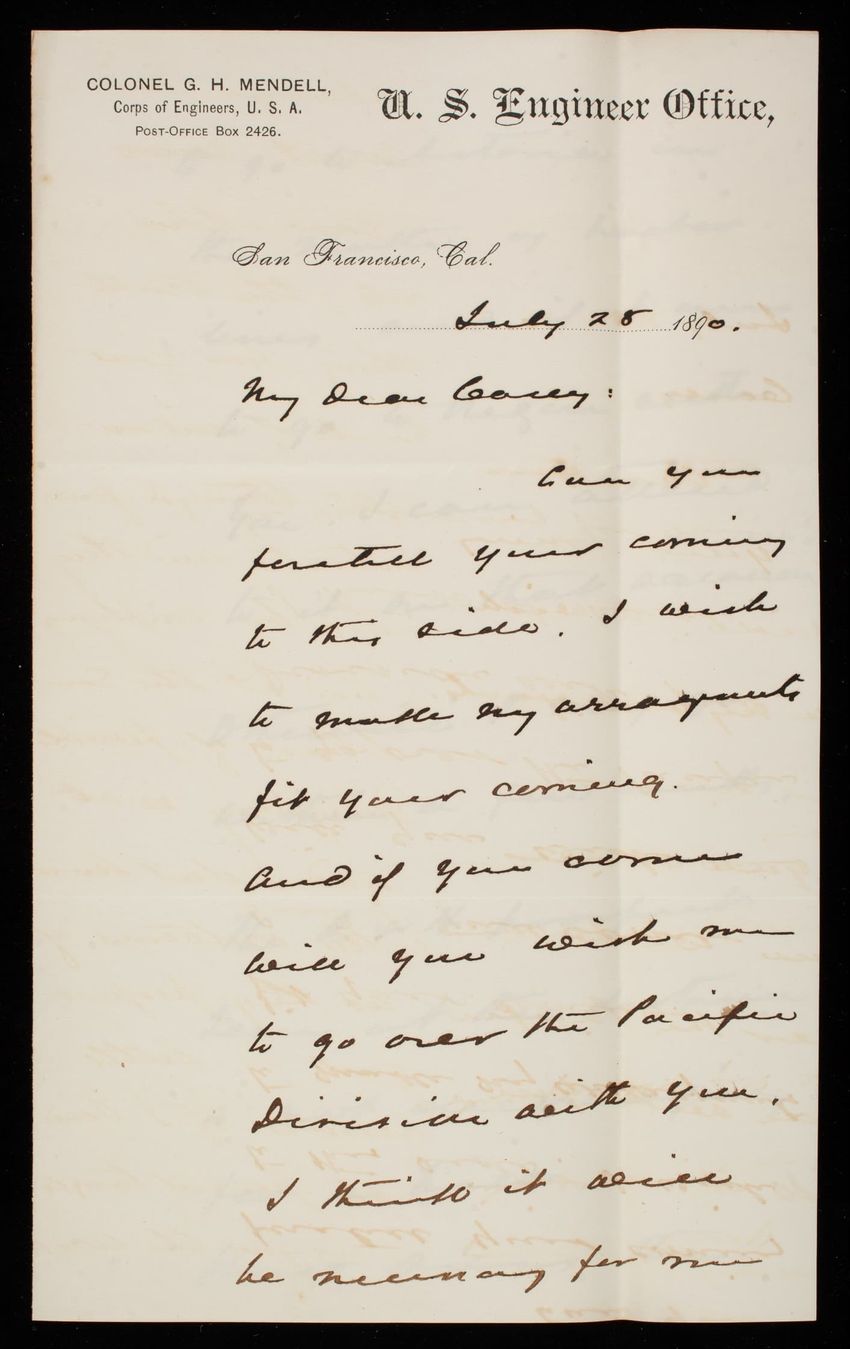 COLONEL G. H. MENDELL,
Corps of Engineers, U. S. A.
POST-OFFICE BOX 2426.
U. S. Engineer Office,
San Francisco, Cal.
July 28 1890.
My Dear Casey:
Can you
foretell your coming
to this side. I wish
to make my arragments
fit your coming.
And if you come
will you wish me
to go over the Pacific
Division with you.
I think it will
be necessary for me